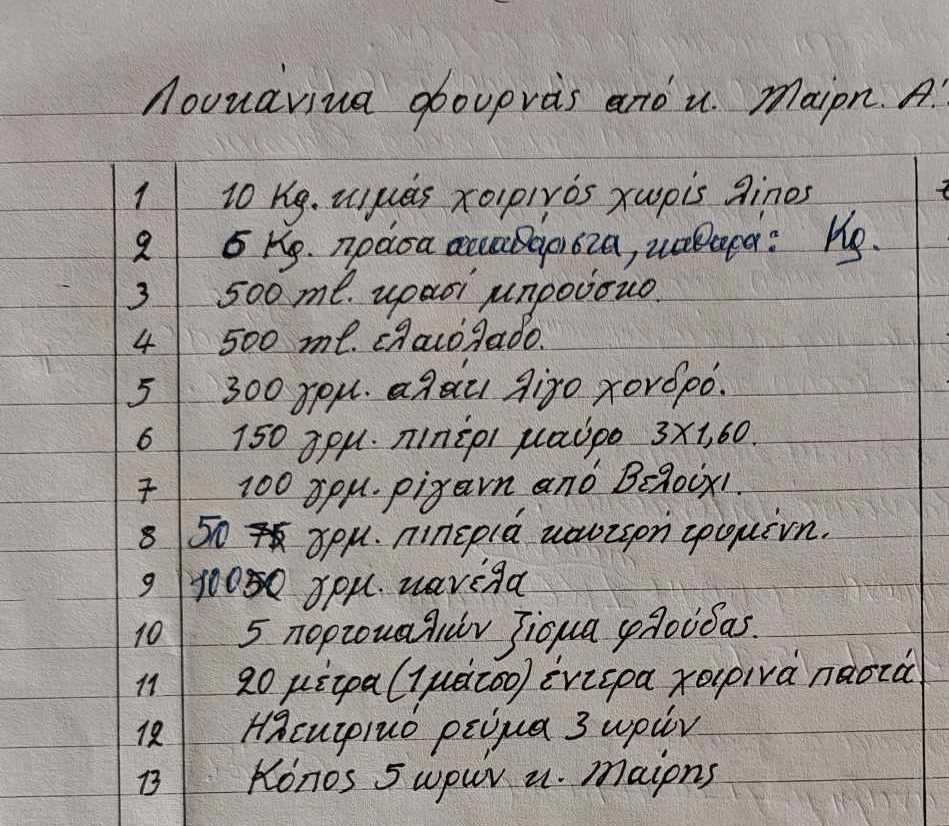 Λουκάνικα φουρνάς από κ. Μαίρη. Α.
1 10 Kg. κιμάς χοιρινός χωρίς λίπος
2 6 Kg. πράσα ακαθάριστα, καθαρά: Kg.
3 500 ml. κρασί μπρούσκο.
4 500 ml. ελαιόλαδο.
5 300 γρμ. αλάτι λίγο χονδρό.
6 150 γρμ. πιπέρι μαύρο 3X1,60.
7 100 γρμ. ρίγανη από Βελούχι.
8 50 75 γρμ. πιπεριά καυτερή τριμένη.
9 100 50 γρμ. κανέλα
10 5 πορτοκαλιών ξίσμα φλούδας.
11 20 μέτρα (1 μάτσο) έντερα χοιρινά παστά
12 Ηλεκτρικό ρεύμα 3 ωρών
13 Κόπος 5 ωρών κ. Μαίρης